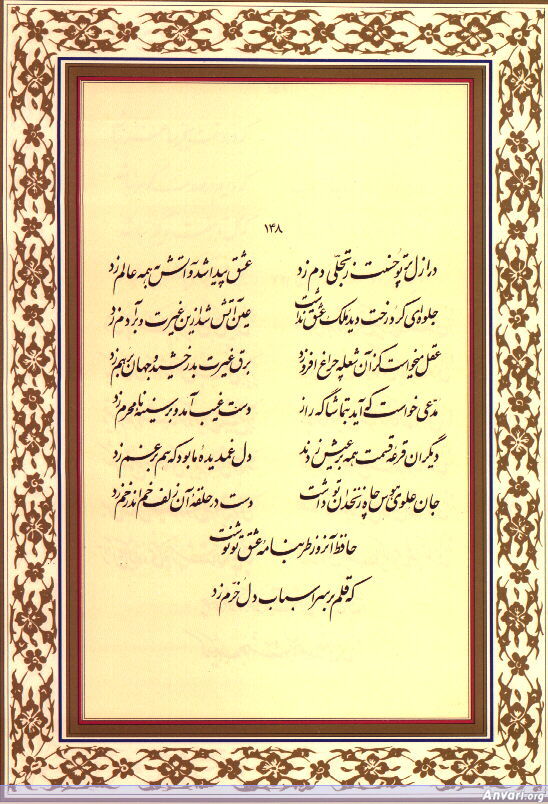 ۱۴۸
در ازل پرتو حسنت ز تجلّی دم زد عشق پیدا شد و آتش به همه عالم زد
جلوه‌ای کرد رخت دید ملک عشق نداشت عین آتش شد ازین غیرت و بر آدم زد
عقل میخواست کز آن شعله چراغ افروزد برق غیرت بدرخشید و جهان برهم زد
مدّعی خواست که آید بتماشاگه راز دست غیب آمد و بر سینهٔ نامحرم زد
دیگران قرعهٔ قسمت همه بر عیش زدند دل غمدیدهٔ ما بود که هم بر غم زد
جان علوی هوس چاه زنخدان تو داشت دست در حلقهٔ آن زلف خم اندر خم زد
حافظ آنروز طربنامهٔ عشق تو نوشت
که قلم بر سر اسباب دل خرّم زد
Anvari.org